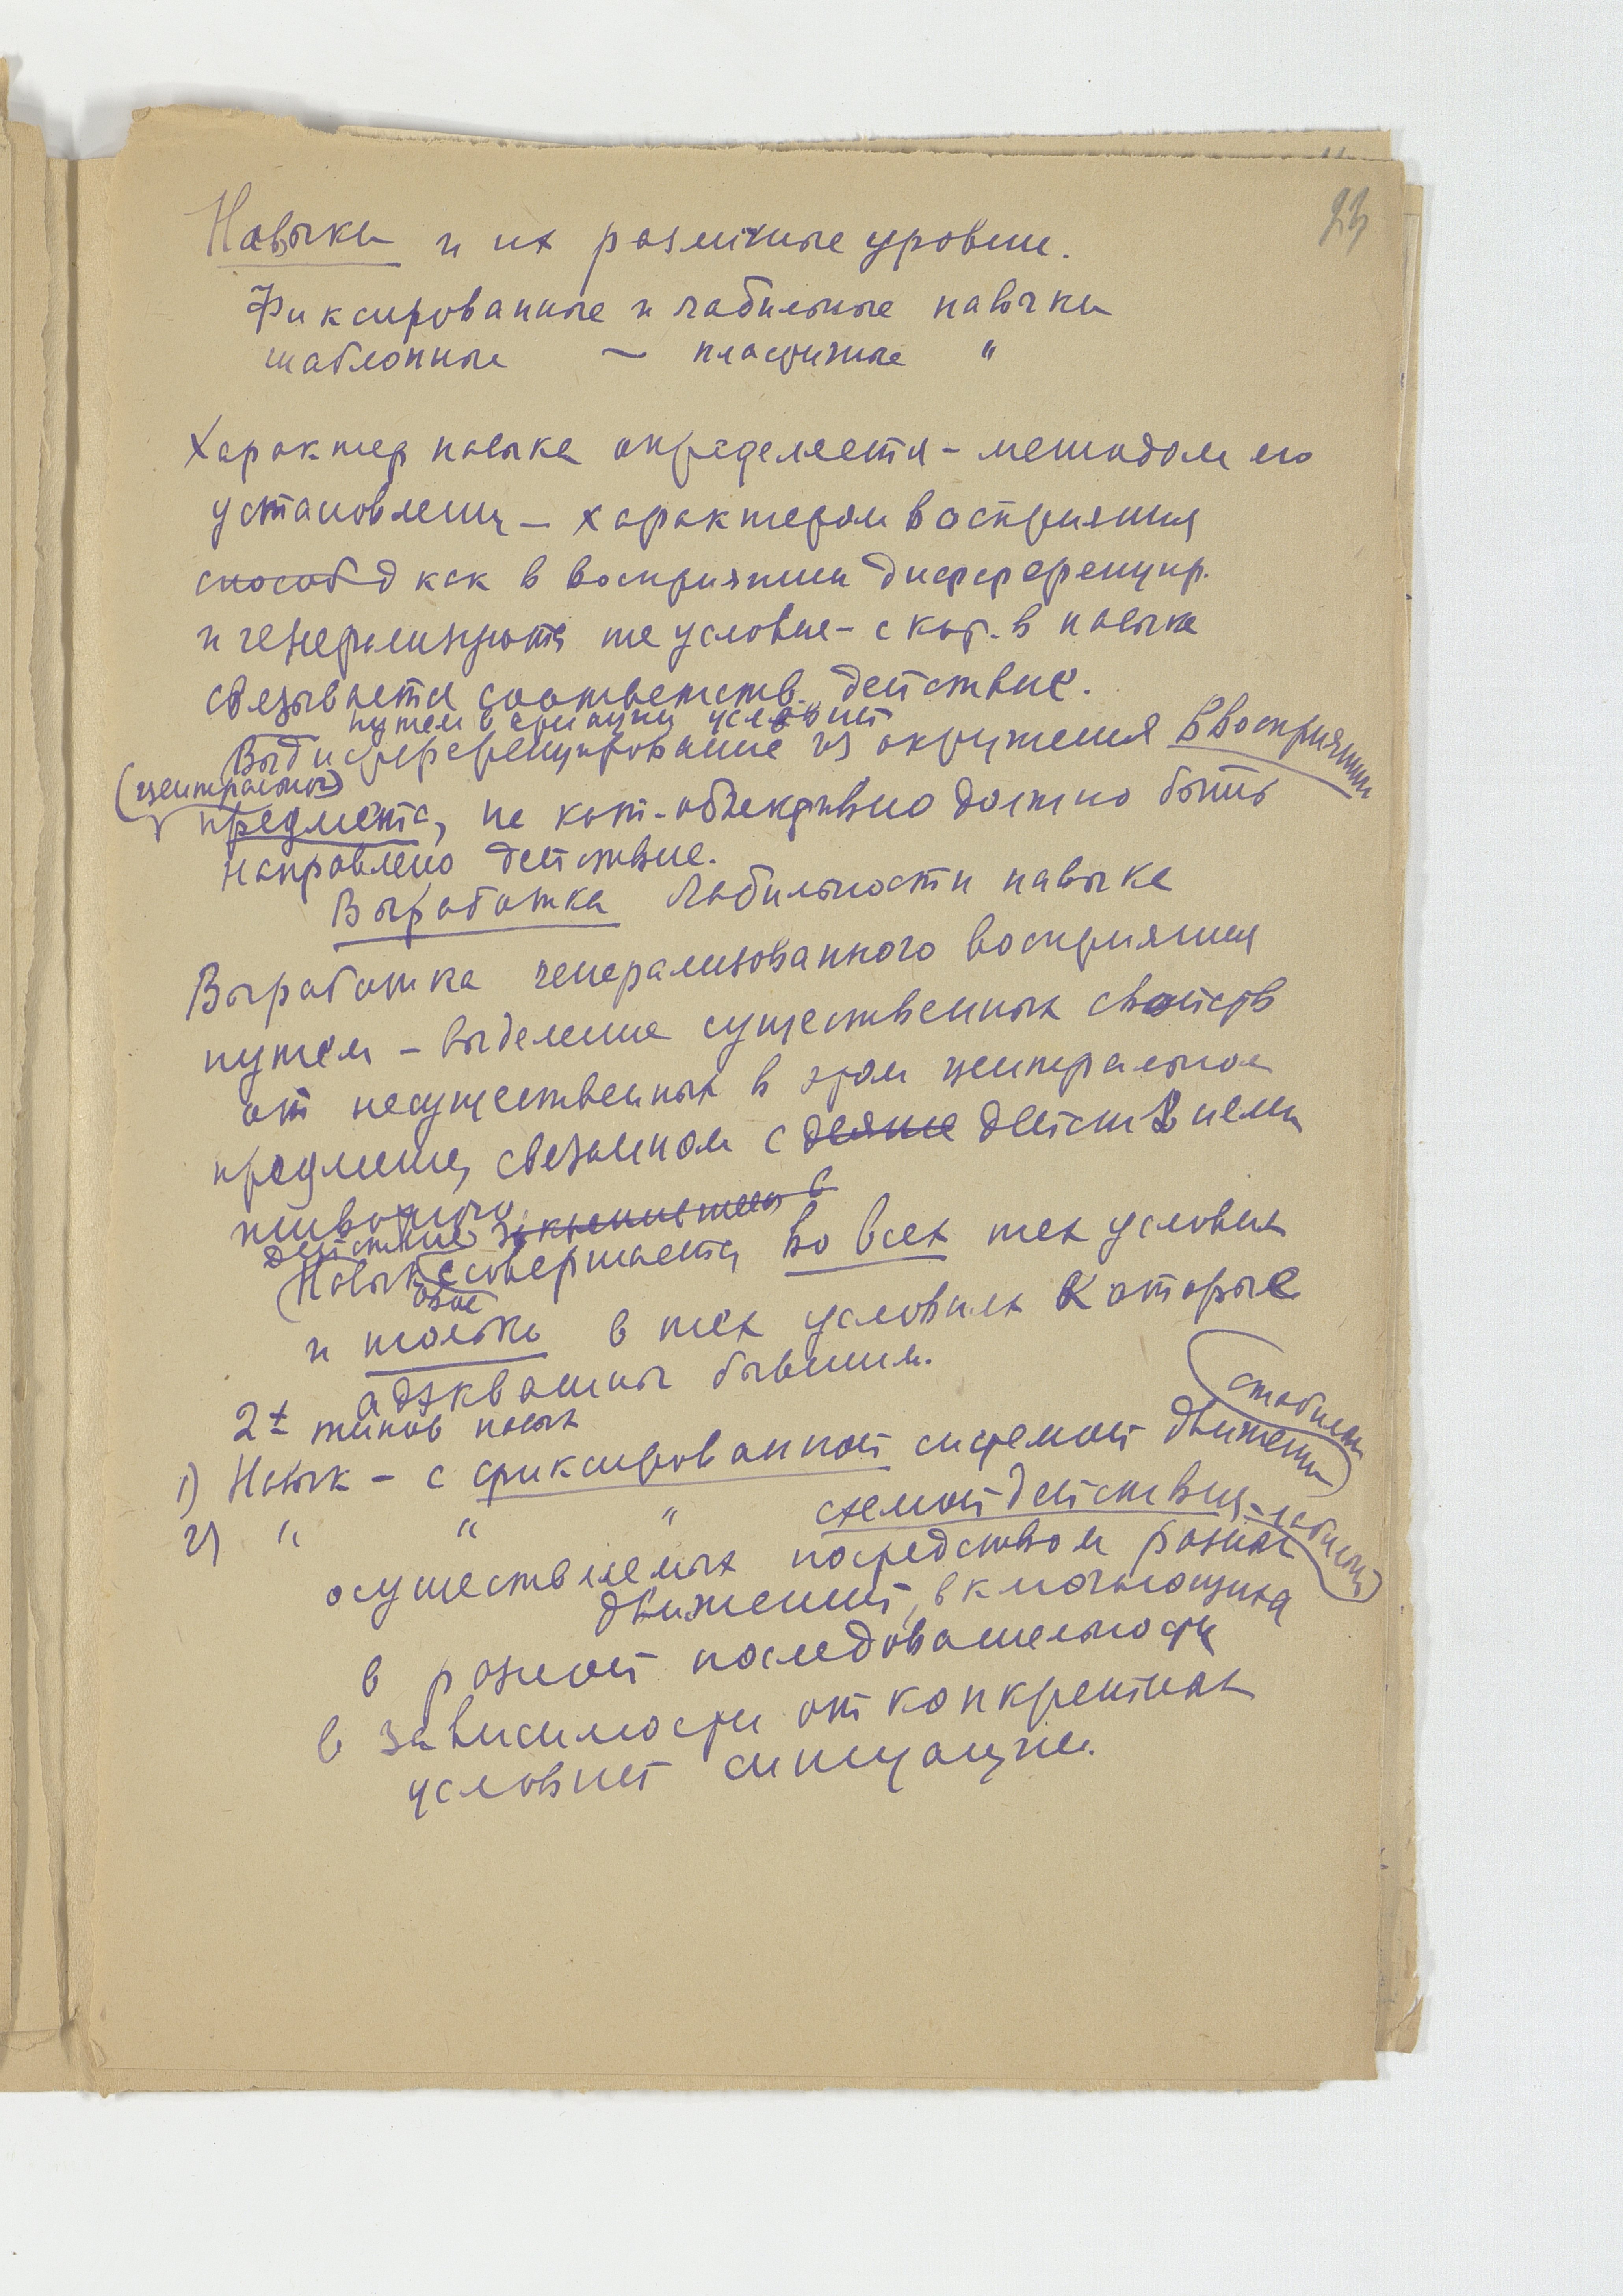 23
Навыки и их различные уровни.
Фиксированные и лабильные навыки
шаблонные — пластичные "
Характер навыка определяется - методом его
установления - характером восприятия
способ д как в восприятии дифференцир.
и генерализируются те условия - с кот. в навыке
связывается соответств. действие.
путем вариации условий
Выдифференцирование из окружения в восприятии
(центрального)
предмета, на кот. объективно должно быть
направлено действие.
Выработка лабильности навыка
Выработка генерализованного восприятия
путем - выделения существенных свойств
от несущественных в этом центральном
предмете, связанном с действием
животного закрепляется в
действие
Навык совершается во всех тех условиях
и только в тех условиях которые
адэкватны бывшим.
2 типов навык
1) Навык - с фиксированной системой движений (стабильн)
2) " " " схемой действия - лабильн)
осуществляемых посредством разных
движений, включающихся
в разной последовательности
в зависимости от конкретных
условий ситуации.